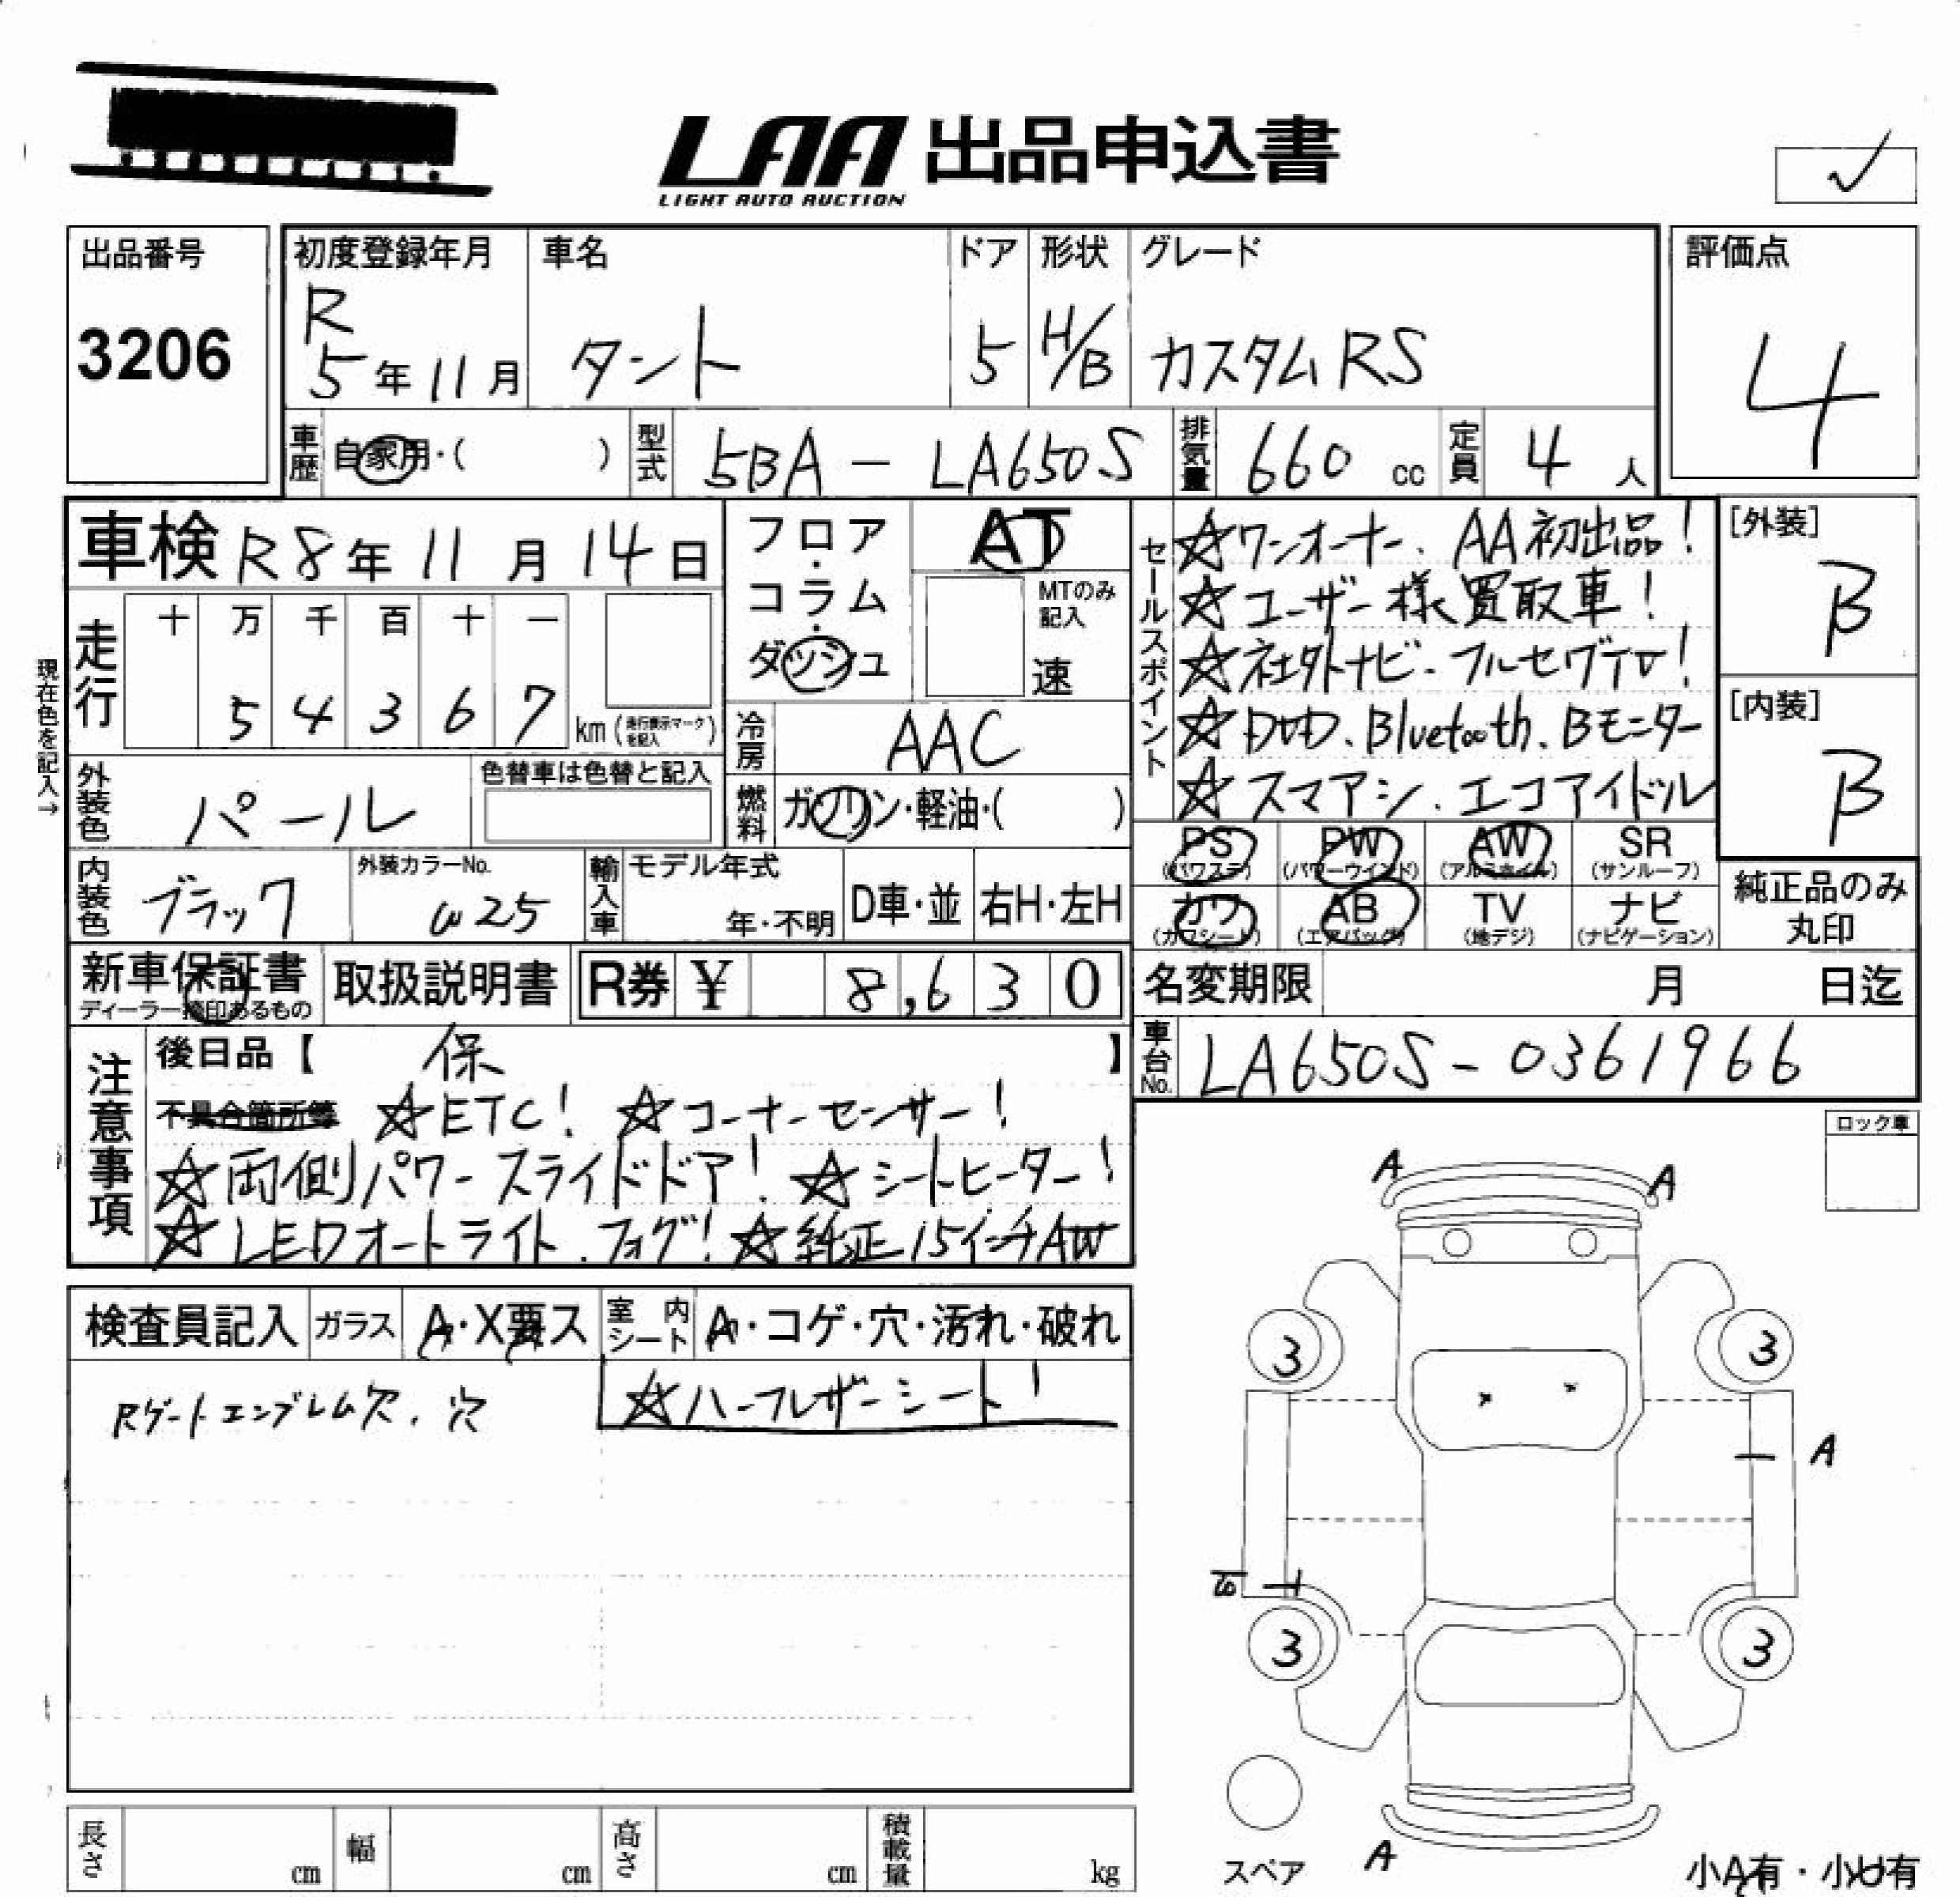 LAA 出品申込書
LIGHT AUTO AUCTION
✓
出品番号
3206
初度登録年月
R
5年11月
車名
タント
ドア
5
形状
H/B
グレード
カスタムRS
評価点
4
車歴 自家用・( )
型式 5BA-LA650S
排気量 660 cc
定員 4 人
車検 R8年11月14日
走行
十 万 千 百 十 一
5 4 3 6 7 km (走行表示マークを記入)
現在色を記入→
フロア・コラム・ダッシュ
AT
MTのみ記入
速
冷房 AAC
燃料 ガソリン・軽油・( )
セールスポイント
☆ワンオーナー、AA初出品!
☆ユーザー様買取車!
☆社外ナビ・フルセグTV!
☆DVD、Bluetooth、Bモニター
☆スマアシ、エコアイドル
[外装]
B
[内装]
B
外装色 パール
色替車は色替と記入
内装色 ブラック
外装カラーNo.
W25
輸入車 モデル年式
年・不明
D車・並 右H・左H
PS (パワステ)
PW (パワーウインド)
AW (アルミホイル)
SR (サンルーフ)
カワ (カワシート)
AB (エアバッグ)
TV (地デジ)
ナビ (ナビゲーション)
純正品のみ丸印
新車保証書
ディーラー捺印あるもの
取扱説明書
R券 ¥ 8,630
名変期限 月 日迄
車台No. LA650S-0361966
注意事項
後日品【 保 】
不具合箇所等 ☆ETC! ☆コーナーセンサー!
☆両側パワースライドドア! ☆シートヒーター!
☆LEDオートライト、フォグ! ☆純正15インチAW
ロック車
検査員記入
ガラス A・X要ス
室内シート A・コゲ・穴・汚れ・破れ
Rゲートエンブレム欠、穴
☆ハーフレザーシート!
A A
3 3
A
3 3
A
スペア
小A有・小U有
長さ cm
幅 cm
高さ cm
積載量 kg